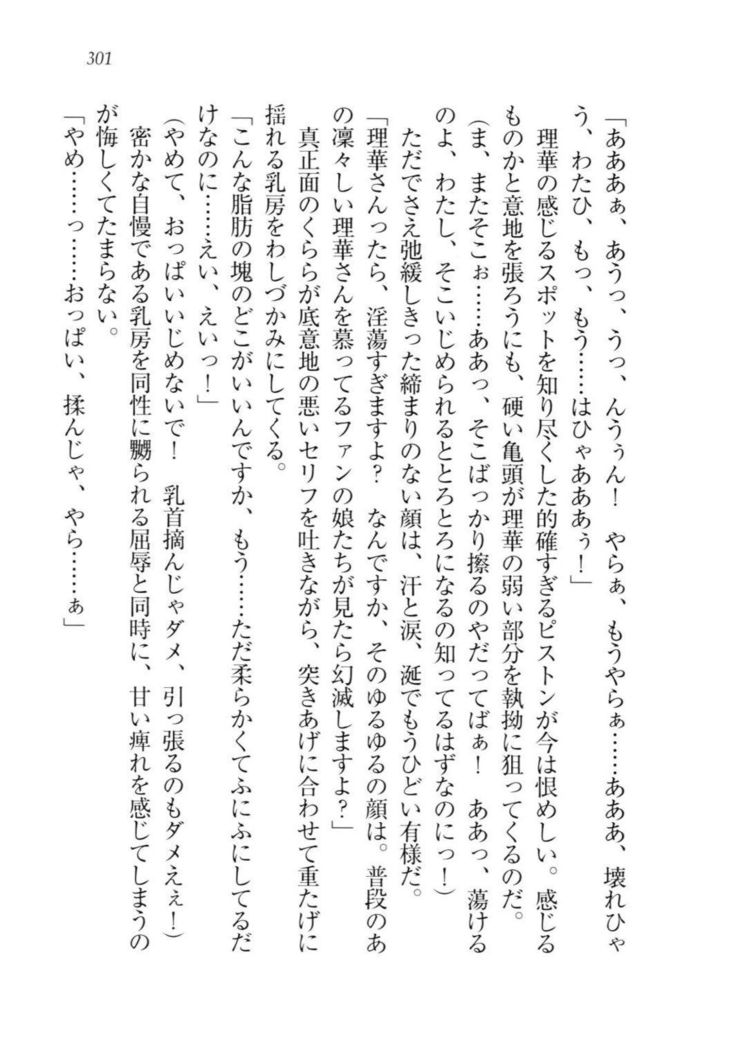 301
「あああぁ、あうっ、うっ、んうぅん！　やらぁ、もうやらぁ……あああ、壊れひゃ
う、わたひ、もっ、もう……はひゃあああぅ！」
　理華の感じるスポットを知り尽くした的確すぎるピストンが今は恨めしい。感じる
ものかと意地を張ろうにも、硬い亀頭が理華の弱い部分を執拗に狙ってくるのだ。
（ま、またそこぉ……ああっ、そこばっかり擦るのやだってばぁ！　ああっ、蕩ける
のよ、わたし、そこいじめられるととろとろになるの知ってるはずなのにっ！）
　ただでさえ弛緩しきった締まりのない顔は、汗と涙、涎でもうひどい有様だ。
「理華さんったら、淫蕩すぎますよ？　なんですか、そのゆるゆるの顔は。普段のあ
の凜々しい理華さんを慕ってるファンの娘たちが見たら幻滅しますよ？」
　真正面のくららが底意地の悪いセリフを吐きながら、突きあげに合わせて重たげに
揺れる乳房をわしづかみにしてくる。
「こんな脂肪の塊のどこがいいんですか、もう……ただ柔らかくてふにふにしてるだ
けなのに……えい、えいっ！」
（やめて、おっぱいいじめないで！　乳首摘んじゃダメ、引っ張るのもダメえぇ！）
　密かな自慢である乳房を同性に嬲られる屈辱と同時に、甘い痺れを感じてしまうの
が悔しくてたまらない。
「やめ……っ……おっぱい、揉んじゃ、やら……ぁ」